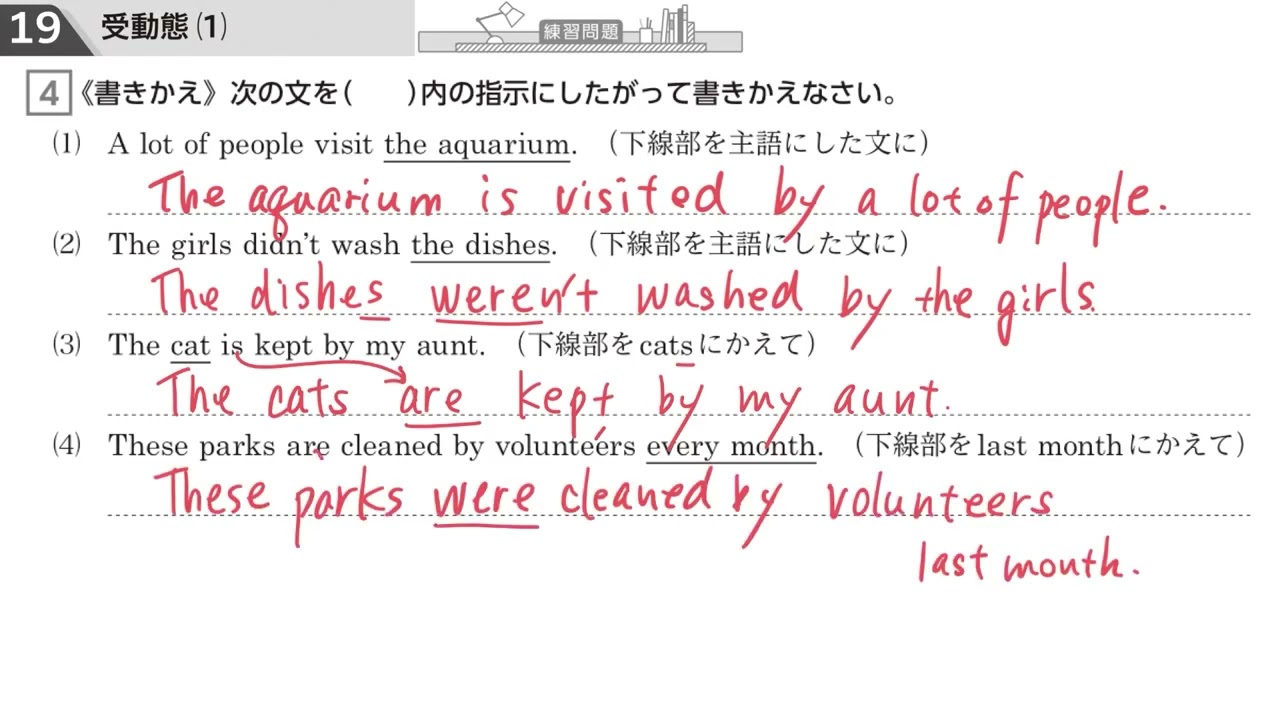 19 受動態(1)
練習問題
4 《書きかえ》次の文を(　　)内の指示にしたがって書きかえなさい。
(1) A lot of people visit the aquarium. （下線部を主語にした文に）
The aquarium is visited by a lot of people.
(2) The girls didn't wash the dishes. （下線部を主語にした文に）
The dishes weren't washed by the girls.
(3) The cat is kept by my aunt. （下線部をcatsにかえて）
The cats are kept by my aunt.
(4) These parks are cleaned by volunteers every month. （下線部をlast monthにかえて）
These parks were cleaned by volunteers
last month.